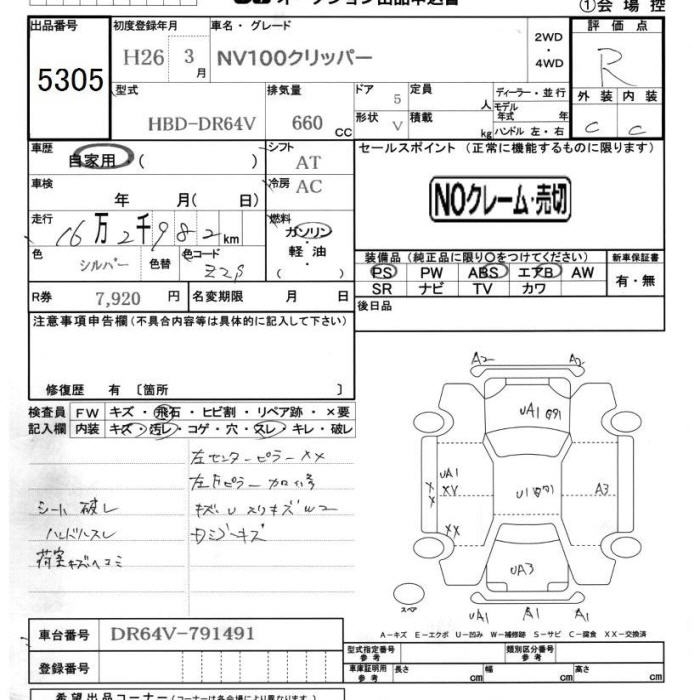 オークション出品申込書
①会場控
出品番号 5305
初度登録年月 H26 3月
車名・グレード NV100クリッパー
2WD・4WD
評価点 R
外装 内装
C C
型式 HBD-DR64V
排気量 660 CC
ドア 5
形状 V
定員 人
積載 kg
ディーラー・並行
モデル年式 年
ハンドル 左・右
車歴 自家用 ( )
シフト AT
車検 年 月( 日)
冷房 AC
セールスポイント (正常に機能するものに限ります)
NOクレーム・売切
走行 16万2千982km
燃料 ガソリン・軽油 ( )
色 シルバー 色替 色コード Z2S
装備品 (純正品に限り○をつけてください)
新車保証書 有・無
PS PW ABS エアB AW
SR ナビ TV カワ
R券 7,920円 名変期限 月 日
後日品
注意事項申告欄(不具合内容等は具体的に記入して下さい)
修復歴 有 [箇所 ]
検査員記入欄
FW キズ・飛石・ヒビ割・リペア跡・×要
内装 キズ・汚レ・コゲ・穴・スレ・キレ・破レ
左センターピラーXX
シート破レ
ハンドルスレ
荷室キズヘコミ
A2 A2
UA1
U1
UA1
XX
A3
XX
UA3
UA1 A1 UA1
スペア
A-キズ E-エクボ U-凹み W-補修跡 S-サビ C-腐食 XX-交換済
車台番号 DR64V-791491
登録番号
型式指定番号 参考
類別区分番号 参考
車庫証明用 参考 長さ cm 幅 cm 高さ cm
希望出品コーナー (コーナーは各会場により異なります)